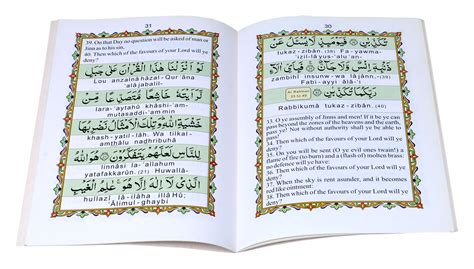 30
تُكَذِّبٰنِ ۞ فَيَوْمَئِذٍ لَّا يُسْـَٔلُ عَنْ
tukaz-zibān. Fa-yawma-
'izil-lā yus-'alu-'an
ذَنْبِهٖٓ اِنْسٌ وَّلَا جَآنٌّ ۞ فَبِاَيِّ اٰلَآءِ
zambihī insunw-wa lājānn. (39)
Fabi-ayyi ālā'i
رَبِّكُمَا تُكَذِّبٰنِ
Ar Rahman
Rabbikumā tukaz-zibān. (40)
33. O ye assembly of Jinns and men! If it be ye can
pass beyond the zones of the heavens and the earth,
pass ye! Not without authority shall ye be able to
pass!
34. Then which of the favours of your Lord will ye
deny?
35. On you will be sent (O ye evil ones twain!) a
flame of fire (to burn) and a (flash of) molten brass:
no defence will ye have:
36. Then which of the favours of your Lord will ye
deny?
37. When the sky is rent asunder, and it becomes
red like ointment:
38. Then which of the favours of your Lord will ye
deny?
31
39. On that Day no question will be asked of man or
Jinn as to his sin,
40. Then which of the favours of your Lord will ye
deny?
لَوْ اَنْزَلْنَا هٰذَا الْقُرْاٰنَ عَلٰى جَبَلٍ
Lou anzalnā hāzal-Qur'āna
alājabalil-
لَّرَاَيْتَهٗ خَاشِعًا مُّتَصَدِّعًا مِّنْ
mutasaddi-'ammin
خَشْيَةِ اللّٰهِ وَتِلْكَ الْاَمْثَالُ نَضْرِبُهَا
khash-yatil-lāh. Wa tilkal-
amthālu nadhribuhā
لِلنَّاسِ لَعَلَّهُمْ يَتَفَكَّرُوْنَ ۞ هُوَ اللّٰهُ
linnāsi la-'allahum
yatafakkarūn. (21) Huwallā-
الَّذِيْ لَآ اِلٰهَ اِلَّا هُوَ عٰلِمُ الْغَيْبِ
hullazī lā-ilāha illā Hū;
'Ālimul-ghaybi